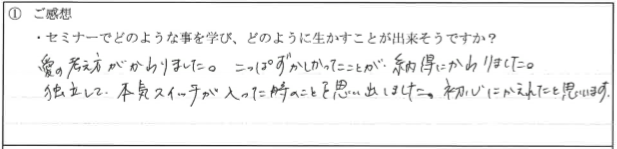 ① ご感想
・セミナーでどのような事を学び、どのように生かすことが出来そうですか？
愛の考え方がかわりました。こっぱずかしかったことが、納得にかわりました。
独立して、本気スイッチが入った時のことを思い出しました。初心にかえれたと思います。